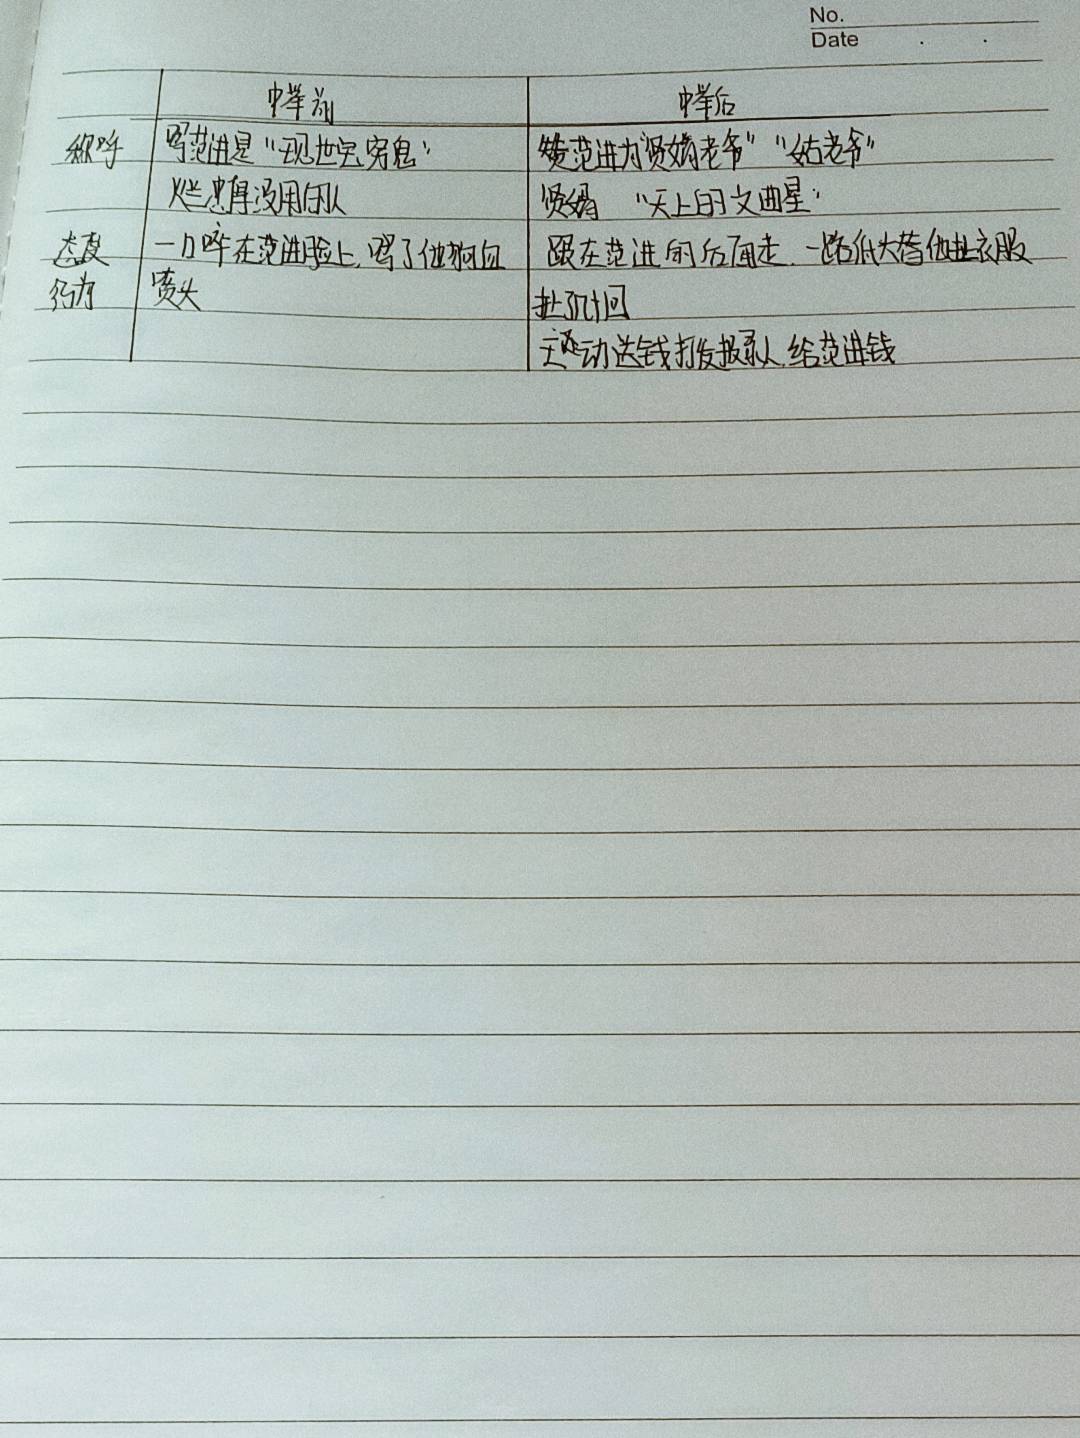 No.
Date . .
中举前 中举后
称呼 骂范进是“现世宝穷鬼” 赞范进为“贤婿老爷”“姑老爷”
烂忠厚没用的人 贤婿 “天上的文曲星”
态度 一口啐在范进脸上,骂了他狗血 跟在范进的后面走,一路低头替他扯衣服
行为 喷头 扯了几十回
主动送钱打发报录人,给范进钱